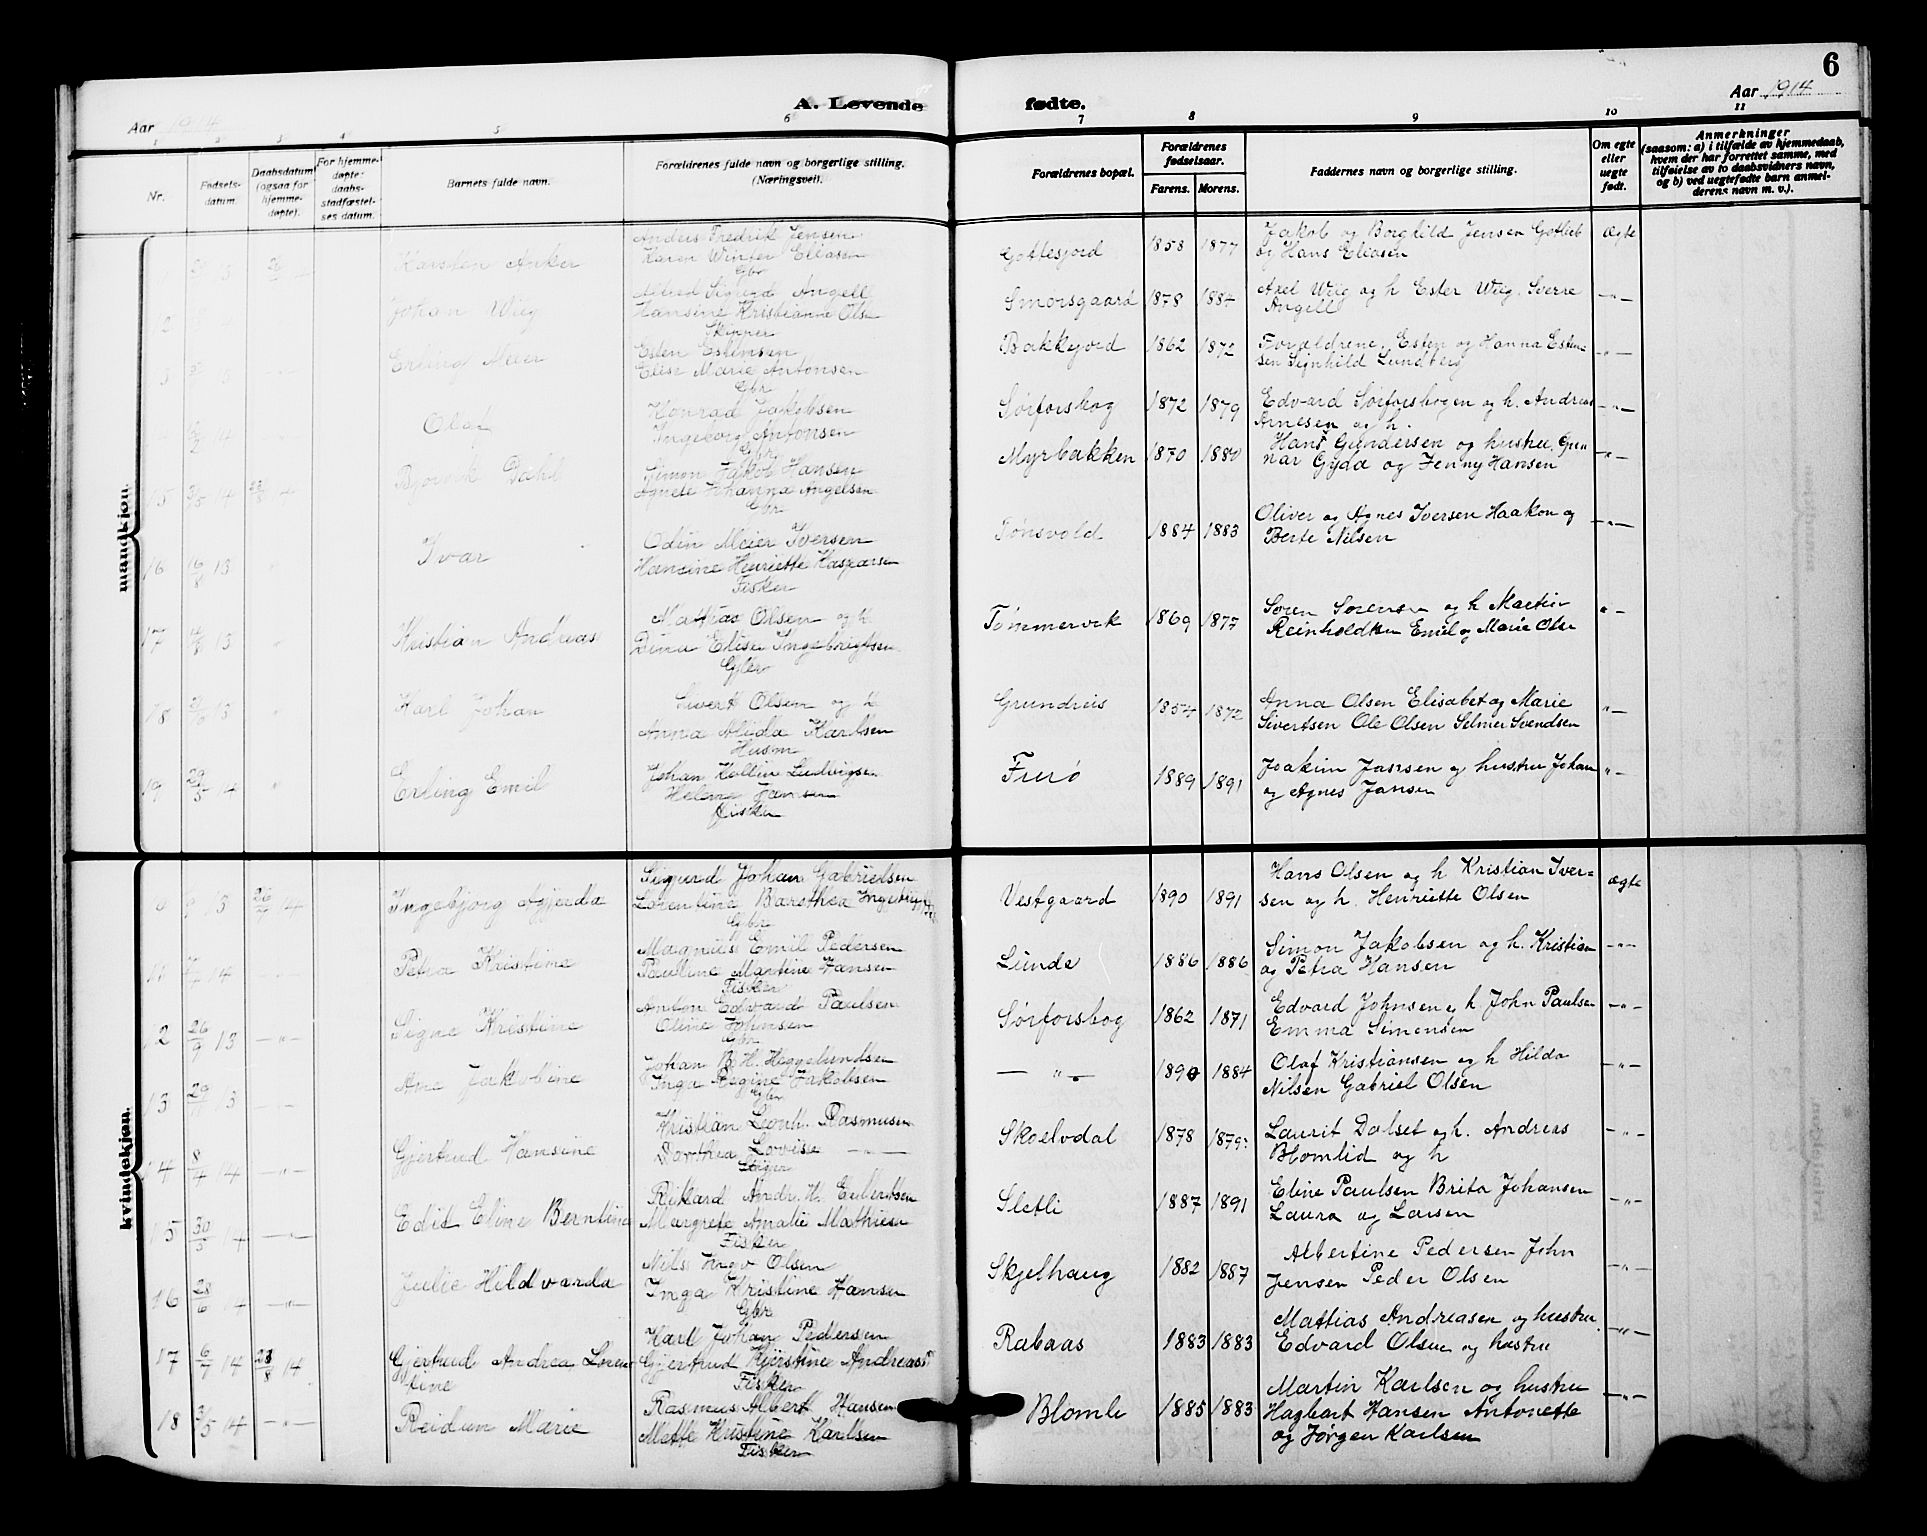 6
A. Levende fødte.
Aar 1914
Aar 1914
1 2 3 4 5 6 7 8 9 10 11
Nr.
Fødsels-
datum.
Daabsdatum
(ogsaa for
hjemme-
døpte).
For hjemme-
døpte:
daabs-
stadfæstel-
ses datum.
Barnets fulde navn.
Forældrenes fulde navn og borgerlige stilling.
(Næringsvei).
Forældrenes bopæl.
Forældrenes
fødselsaar.
Farens. Morens.
Faddernes navn og borgerlige stilling.
Om egte
eller
uegte
født.
Anmerkninger
(saasom: a) i tilfælde av hjemmedaab,
hvem der har forrettet samme, med
tilføielse av to daabsvidners navn,
og b) ved uegtefødte barn anmel-
derens navn m. v.).
mandkjøn.
Karsten Anker
Anders Fredrik Jensen
Karen Winter Eliasen
Gbr
Gottesjord 1858 1877
Jakob og Borghild Jensen Gotlieb
og Hans Eliasen
Ægte
12
Johan Wiig
Alfred Sigurd Angell
Hansine Kristianne Olsen
Skipper
Smorsgaard 1878 1884
Axel Wiig og h Ester Wiig. Sverre
Angell
—"—
3
Erling Meier
Esten Estensen
Elise Marie Antonsen
Gbr
Bakkejord 1862 1872
Forældrene, Esten og Hanna Esten-
sen Signhild Lundberg
—"—
Olaf
Konrad Jakobsen
Ingeborg Antonsen
Gbr
Sørforskog 1872 1879
Edvard Sørforsbogen og h. Andreas
Arnesen og h.
—"—
15 3/5 14 23/8 14
Bjorvik Dahl
Simon Jakob Hansen
Agnete Johanna Angelsen
Gbr
Myrbakken 1870 1880
Hans Gundersen og hustru, Gun
nar Gyda og Jenny Hansen
—"—
16 16/8 13
Ivar
Odin Meier Iversen
Hansine Henriette Kaspersen
Fisker
Tønsvold 1884 1883
Oliver og Agnes Iversen Haakon og
Berte Nilsen
—"—
17 13
Kristian Andreas
Mattias Olsen og h
Dina Elise Ingebrigtsen
Gbr
Tømmervik 1869 1877
Søren Sørensen og h Martin
Reinholdtsen Emil og Marie Olsen
"—
18 13
Karl Johan
Sivert Olsen og h
Anna Alida Karlsen
Husm
Grundreis 1854 1872
Anna Olsen Elisabet og Marie
Sivertsen Ole Olsen Selmer Svendsen
"—
19 29/5 14
Erling Emil
Johan Kollin Ludvigsen
Helene Jansen
Fisker
Furø 1889 1891
Joakim Jansen og hustru Johan
og Agnes Jansen
"—
kvindekjøn.
26/7 14
Ingebjørg Agjerda
Sigurd Johan Gabrielsen
Lorentine Barsthea Ingebrigtsen
Gbr
Vestgaard 1890 1891
Hans Olsen og h Kristian Iver=
sen og h. Henriette Olsen
ægte
11 14
Petra Kristine
Magnus Emil Pedersen
Pauline Martine Hansen
Fisker
Lunde 1886 1886
Simon Jakobsen og h. Kristian
og Petra Hansen
—"—
12 26/9 13 —"—
Signe Kristine
Anton Edvard Paulsen
Oline Johnsen
Gbr
Sørforsbog 1862 1871
Edvard Johnsen og h John Paulsen
Emma Simonsen
—"—
13
Ane Jakobine
Johan B. H. Heggelundsen
Inga Regine Jakobsen
Gbr
— " — 1890 1884
Olaf Kristiansen og h Hilda
Nilsen Gabriel Olsen
—"—
14 8/4 14 —"—
Gjertrud Hansine
Kristian Leonh. Rasmusen
Dorthea Lovise —"—
Skoelvdal 1878 1879
Laurit Dalset og h. Andreas
Blomlid og h
—"—
15 30/5 14 —"—
Edit Eline Berntine
Rikard Andr. H. Eubertsen
Margrete Amalie Mathisen
Fisker
Sletli 1887 1891
Eline Paulsen Brita Johansen
Laura og Larsen
—"—
16 28/6 14 —"—
Julie Hildvarda
Nils Ingv Olsen
Inga Kristine Hansen
Gbr
Skjelhaug 1882 1887
Albertine Pedersen John
Jensen Peder Olsen
—"—
17 6/7 14 23/8 14
Gjertrud Andrea Loren
tine
Karl Johan Pedersen
Gjertrud Kjerstine Andreass
Fisker
Rabaas 1883 1883
Mattias Andreasen og hustru
Edvard Olsen og hustru
—"—
18 3/5 14 —"—
Reidun Marie
Rasmus Albert Hansen
Mette Kristine Karlsen
Fisker
Blomli 1885 1883
Martin Karlsen og hustru
Hagbart Hansen Antonette
og Jørgen Karlsen
—"—